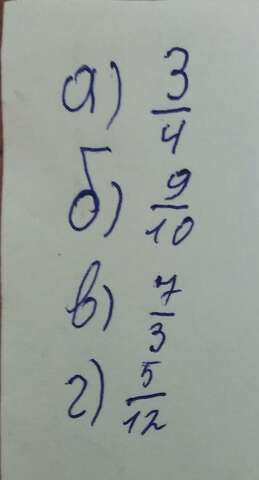 а) 3/4
б) 9/10
в) 7/3
г) 5/12